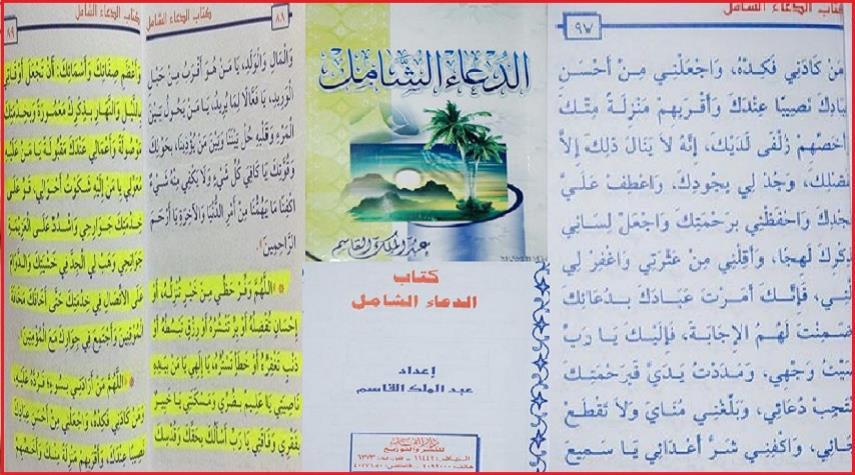 كتاب الدعاء الشامل
٨٩
وأعظم صفاتك وأسمائك: أن تجعل أوقاتي
بالليل والنهار بذكرك معمورة وبخدمتك
موصولة وأعمالي عندك مقبولة يا من عليه
معولي يا من إليه شكوت أحوالي، قو على
خدمتك جوارحي واشدد على العزيمة
جوانحي وهب لي الجد في خشيتك والدوام
على الاتصال في خدمتك حتى أخافك مخافة
الموقنين وأجتمع في جوارك مع المؤمنين
اللهم من أرادني بسوء فرده عليه،
ومن كادني فكده، واجعلني من أحسن عبادك
نصيبا عندك، وأقربهم منزلة منك وأخصهم
٨٨
كتاب الدعاء الشامل
والمال والولد، يا من هو أقرب من حبل
الوريد، يا فعالا لما يريد، يا من يحول بين
المرء وقلبه حل بيننا وبين من يؤذينا، بحولك
وقوتك يا كافي كل شيء ولا يكفي منه شيء
اكفنا ما يهمنا من أمر الدنيا والآخرة يا أرحم
الراحمين
اللهم وفر حظي من خير تنزله أو
إحسان تفضله أو بر تنشره أو رزق تبسطه أو
ذنب تغفره أو خطأ تستره يا إلهي يا من بيده
ناصيتي يا عليم بضري ومسكنتي يا خبير
بفقري وفاقتي يا رب أسألك بحقك وقدسك
الدعاء الشامل
عبد الملك القاسم
كتاب
الدعاء الشامل
إعداد
عبد الملك القاسم
دار القاسم
للنشر والتوزيع
كتاب الدعاء الشامل
٩٧
من كادني فكده، واجعلني من أحسن
بادك نصيبا عندك وأقربهم منزلة منك
أخصهم زلفى لديك، إنه لا ينال ذلك إلا
فضلك، وجد لي بجودك، واعطف علي
جدك واحفظني برحمتك واجعل لساني
ذكرك لهجا، وأقلني من عثرتي واغفر لي
لتي، فإنك أمرت عبادك بدعائك
ضمنت لهم الإجابة، فإليك يا رب
صبت وجهي، ومددت يدي فبرحمتك
تجب دعائي، وبلغني مناي ولا تقطع
جائي، واكفني شر أعدائي يا سميع